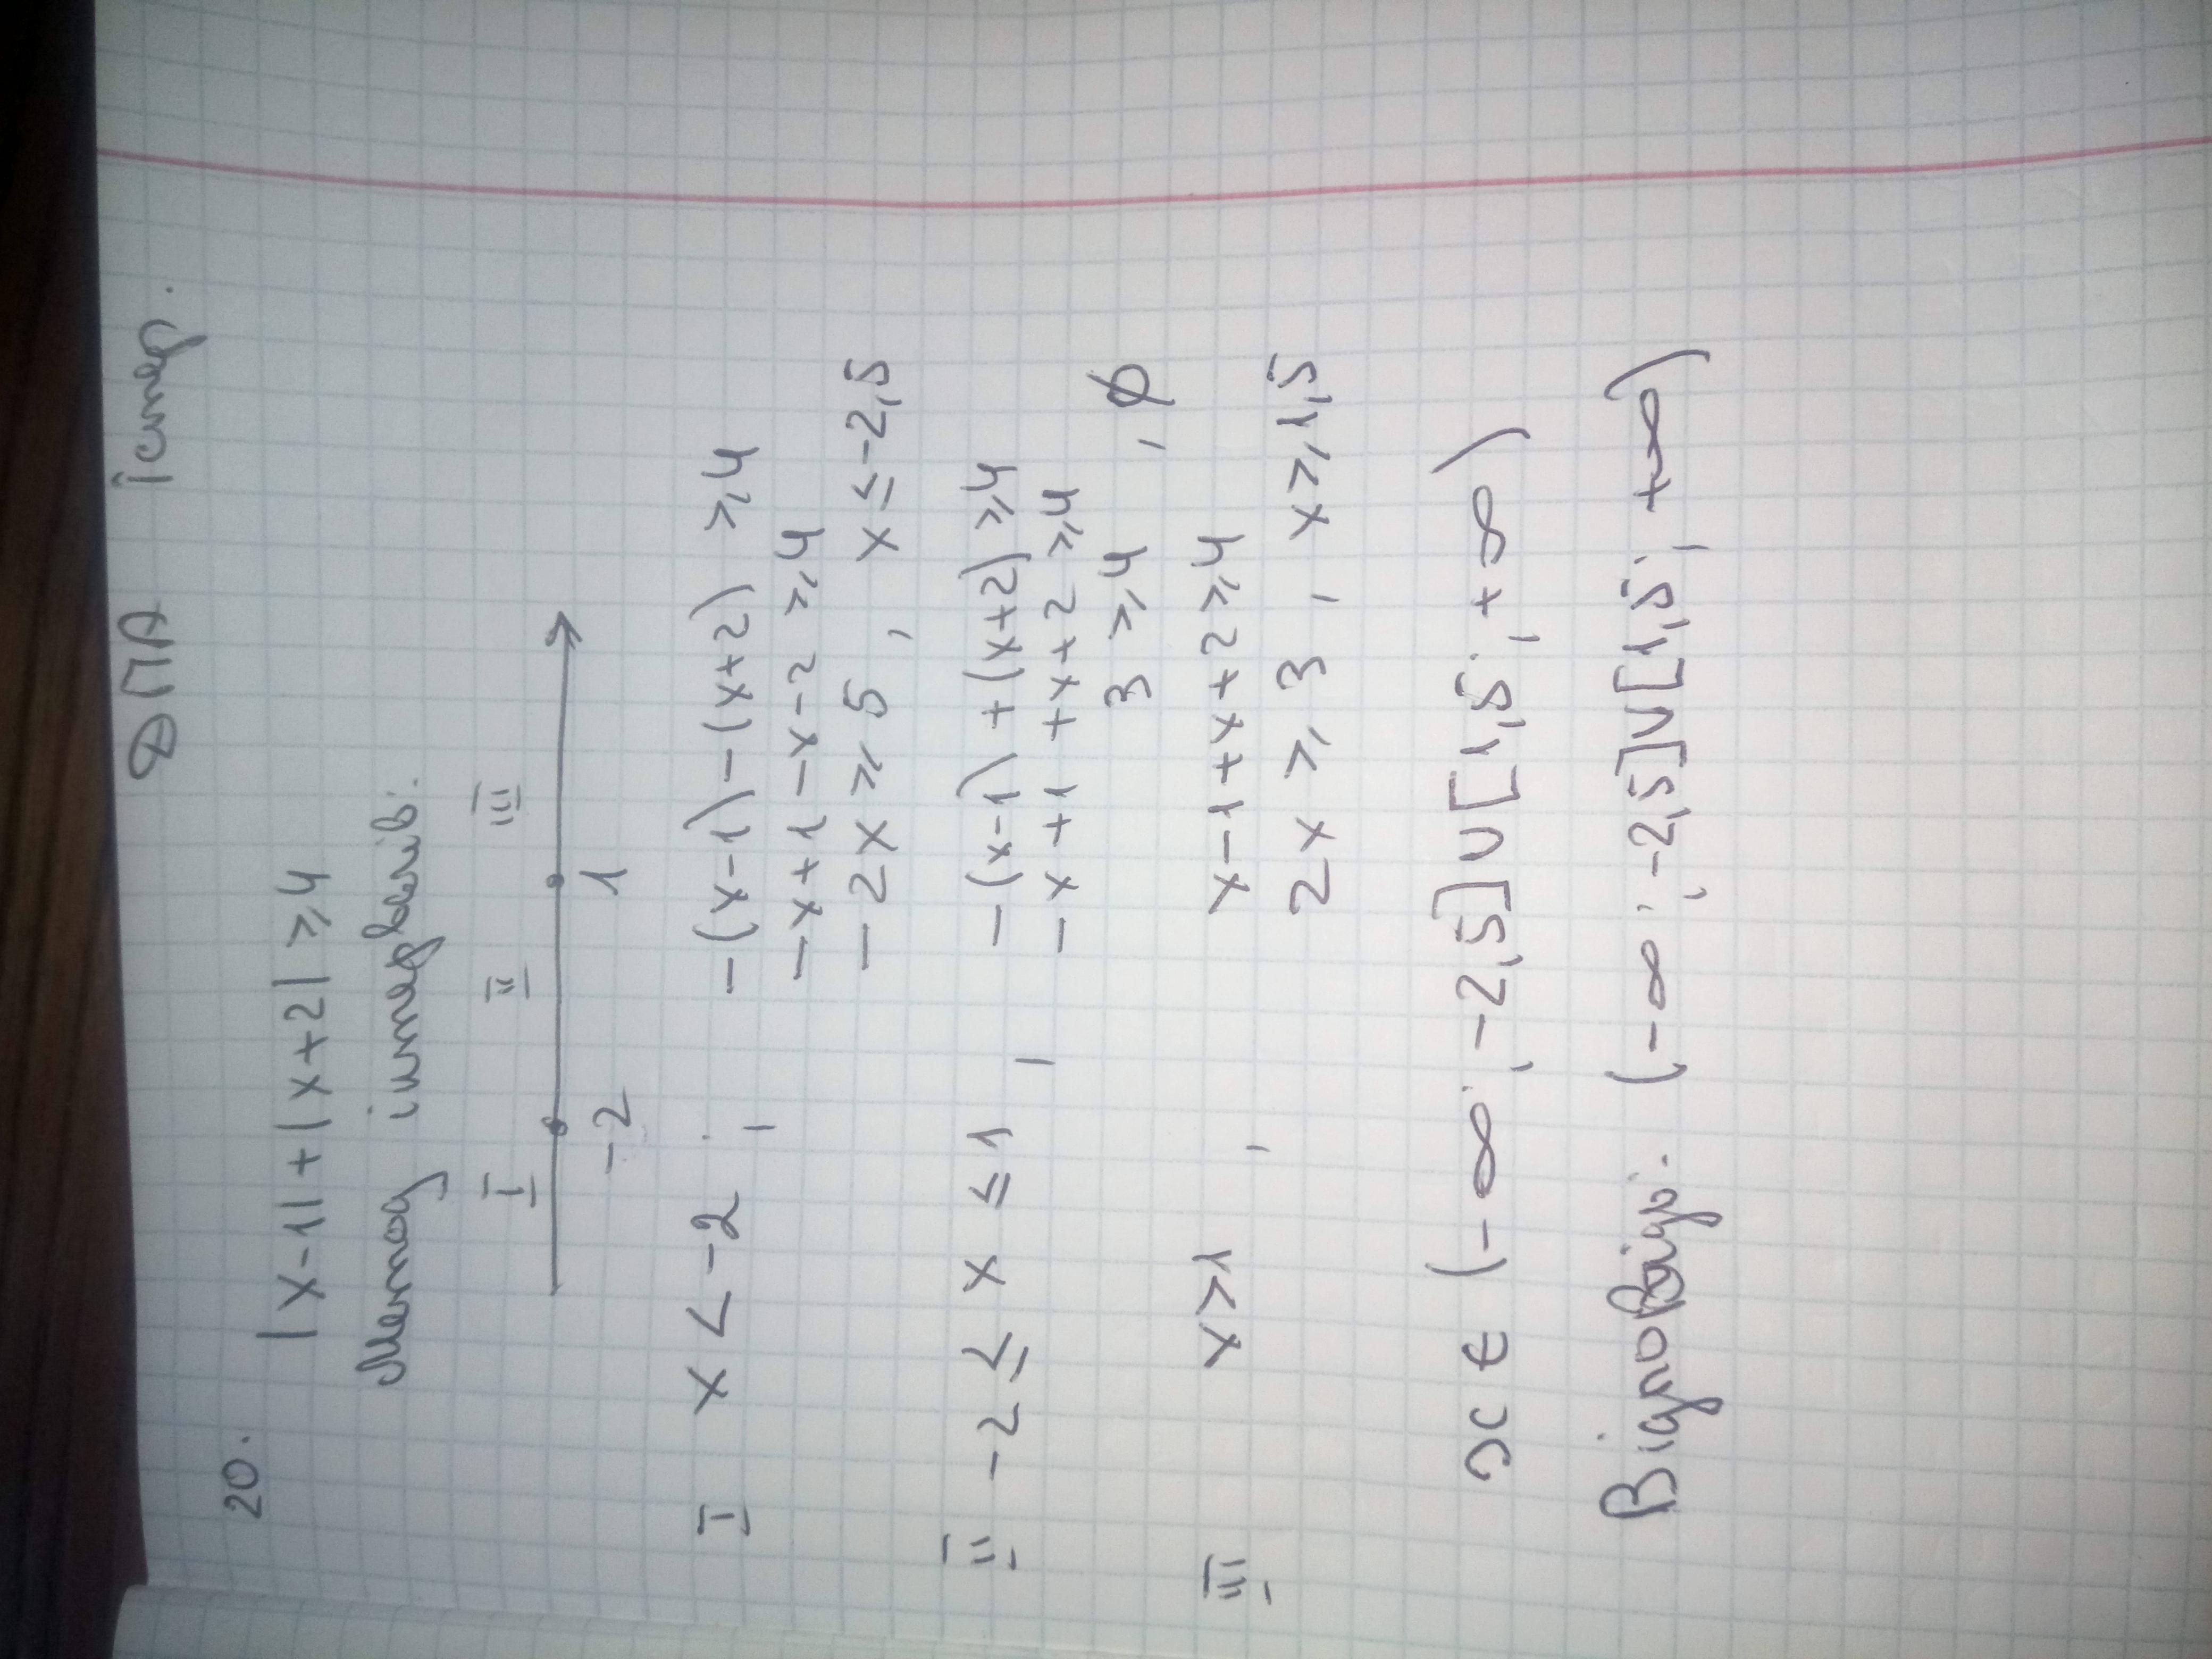 ДПА інтер.
20. |x-1|+|x+2| ≥ 4
Метод інтервалів.
I II III
-2 1
I x < -2 ; -(x-1)-(x+2) ≥ 4
-x+1-x-2 ≥ 4
-2x ≥ 5 , x ≤ -2,5
II -2 ≤ x ≤ 1 , -(x-1)+(x+2) ≥ 4
-x+1+x+2 ≥ 4
3 ≥ 4 , ∅
III x>1 , x-1+x+2 ≥ 4
2x ≥ 3 , x ≥ 1,5
x ∈ (-∞; -2,5]∪[1,5; +∞)
Відповідь. (-∞; -2,5]∪[1,5; +∞)